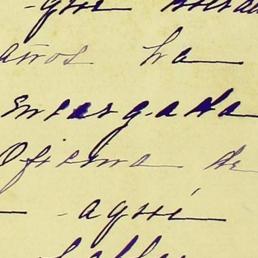 que
años ha
encargada
Oficina de
aquí